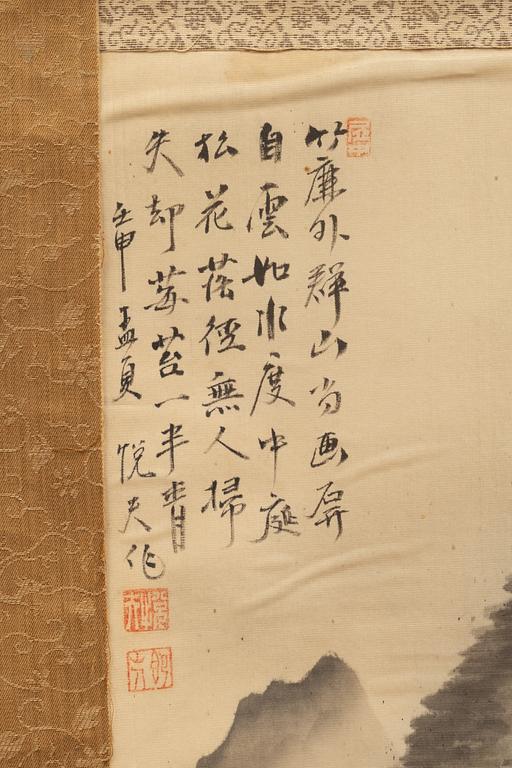 竹簾外群山当画屏
白雲如水度中庭
松花落径無人掃
失却莓苔一半青
壬申孟夏 悦夫作